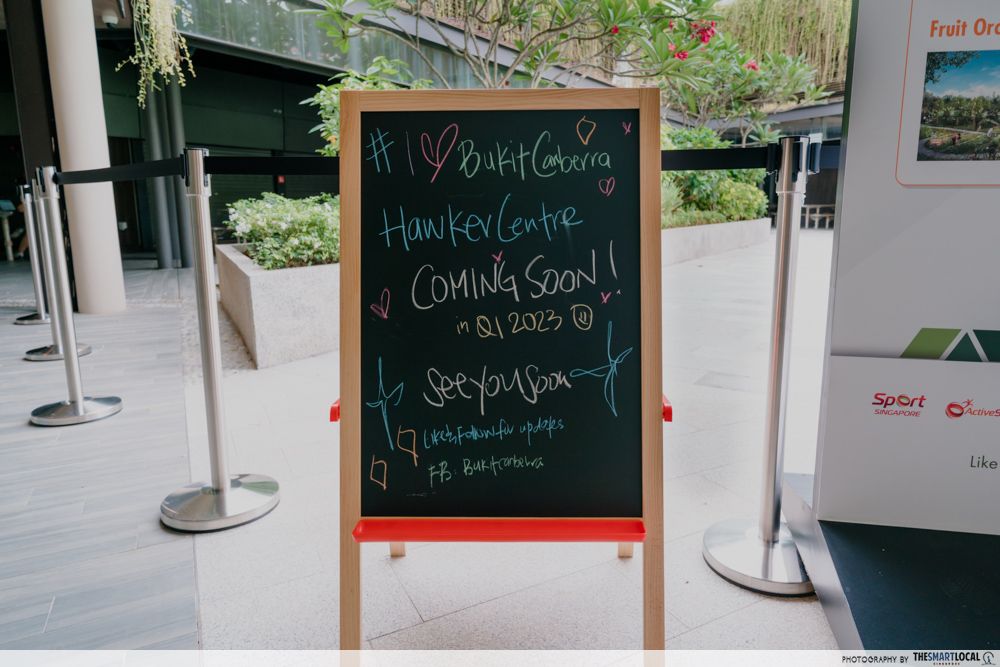 # I BukitCanberra
HawkerCentre
COMING SOON!
in Q1 2023
See You Soon
Like & Follow for updates
FB: Bukitcanberra
Fruit Orc
Sport
SINGAPORE
ActiveS
Like
PHOTOGRAPHY BY THESMARTLOCAL